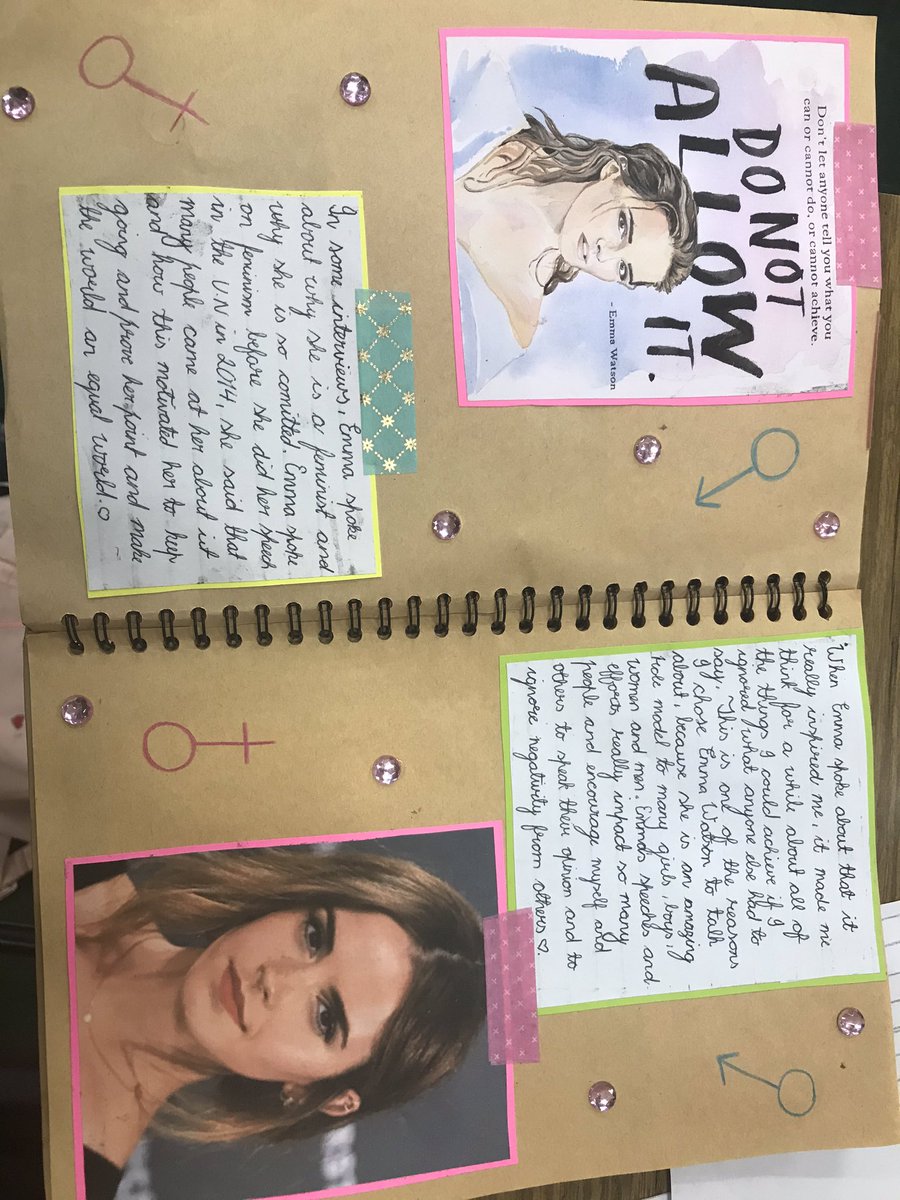 Don't let anyone tell you what you
can or cannot do, or cannot achieve.
DO NOT
ALLOW
IT.
- Emma Watson
In some interviews, Emma spoke
about why she is a feminist and
why she is so comitted. Emma spoke
on feminism before she did her speech
in the U.N in 2014, she said that
many people came at her about it
and how this motivated her to keep
going and prove her point and make
the world an equal world.♡
When Emma spoke about that it
really inspired me, it made me
think for a while about all of
the things I could achieve if I
ignored what anyone else had to
say. This is one of the reasons
I chose Emma Watson to talk
about, because she is an amazing
role model to many girls, boys,
women and men. Emmas speeches and
efforts really impact so many
people and encourage myself and
others to speak their opinion and to
ignore negativity from others♡.